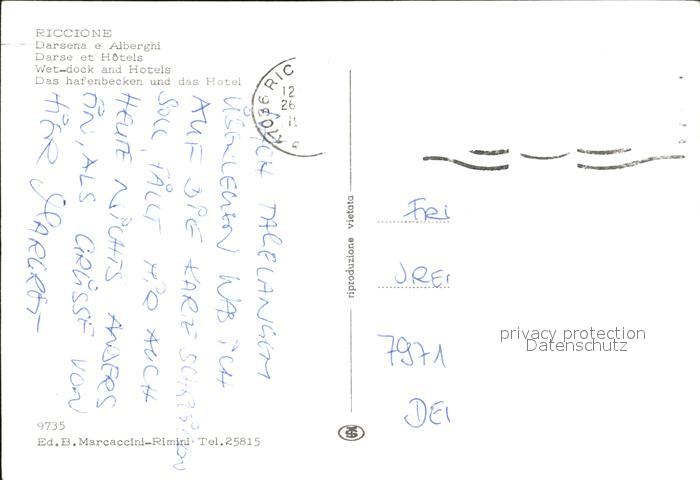 RICCIONE
Darsena e Alberghi
Darse et Hôtels
Wet-dock and Hotels
Das hafenbecken und das Hotel
47036 RIC
12
26
NACH TAGELANGEM
ÜBERLEGEN WAS ICH
AUF DIE KARTE SCHREIBEN
SOLL, FÄLLT MIR AUCH
HEUTE NICHTS ANDERS
EIN, ALS GRÜSSE VON
HIER
MARGRET
riproduzione vietata
FRI
7971
privacy protection
Datenschutz
9735
Ed.B.Marcaccini-Rimini Tel.25815